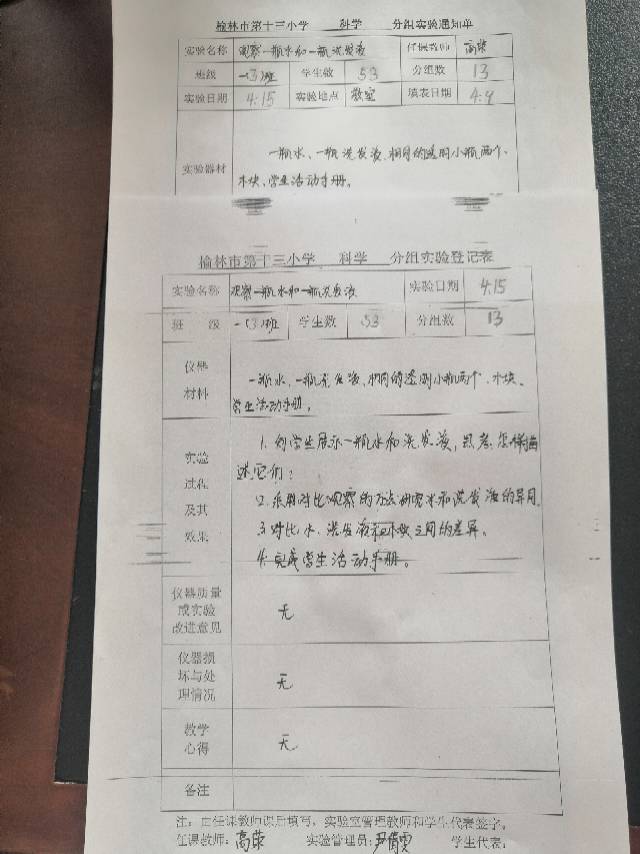 榆林市第十三小学 科学 分组实验通知单
实验名称 观察一瓶水和一瓶洗发液 任课教师
班级 一(3)班 学生数 53 分组数 13
实验日期 4.15 实验地点 教室 填表日期 4.9
一瓶水、一瓶洗发液、相同的透明小瓶两个、
实验器材
木块、学生活动手册。
榆林市第十三小学 科学 分组实验登记表
实验名称 观察一瓶水和一瓶洗发液 实验日期 4.15
班 级 一(3)班 学生数 53 分组数 13
仪器
一瓶水、一瓶洗发液、相同的透明小瓶两个、木块、
材料
学生活动手册。
1. 向学生展示一瓶水和洗发液,思考:怎样描
实验
述它们?
过程
2. 采用对比观察的方法研究水和洗发液的异同。
及其
3. 对比水、洗发液和木块之间的差异。
效果
4. 完成学生活动手册。
仪器质量
或实验 无
改进意见
仪器损
坏与处 无
理情况
教学
心得 无
备注
注:由任课教师课后填写,实验室管理教师和学生代表签字。
任课教师: 实验管理员: 学生代表: